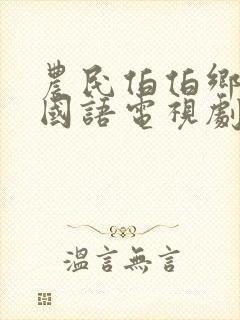 農民伯伯鄉
國語電視劇
溫言無言